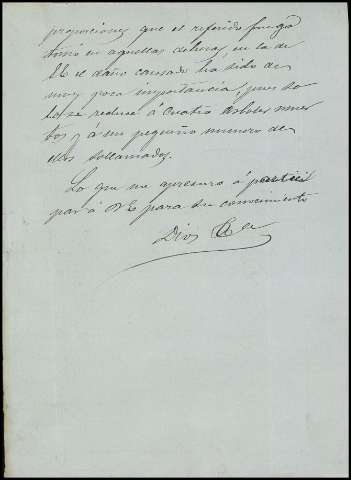 proporciones que el referido fuego
tomó en aquellas dehesas, en la de
el daño causado ha sido de
muy poca importancia, pues so
lo se reduce á cuatro arboles muer
tos y á un pequeño numero de
ellos sollamados.
Lo que me apresuro á partici
par á VE para su conocimiento
Dios &ca